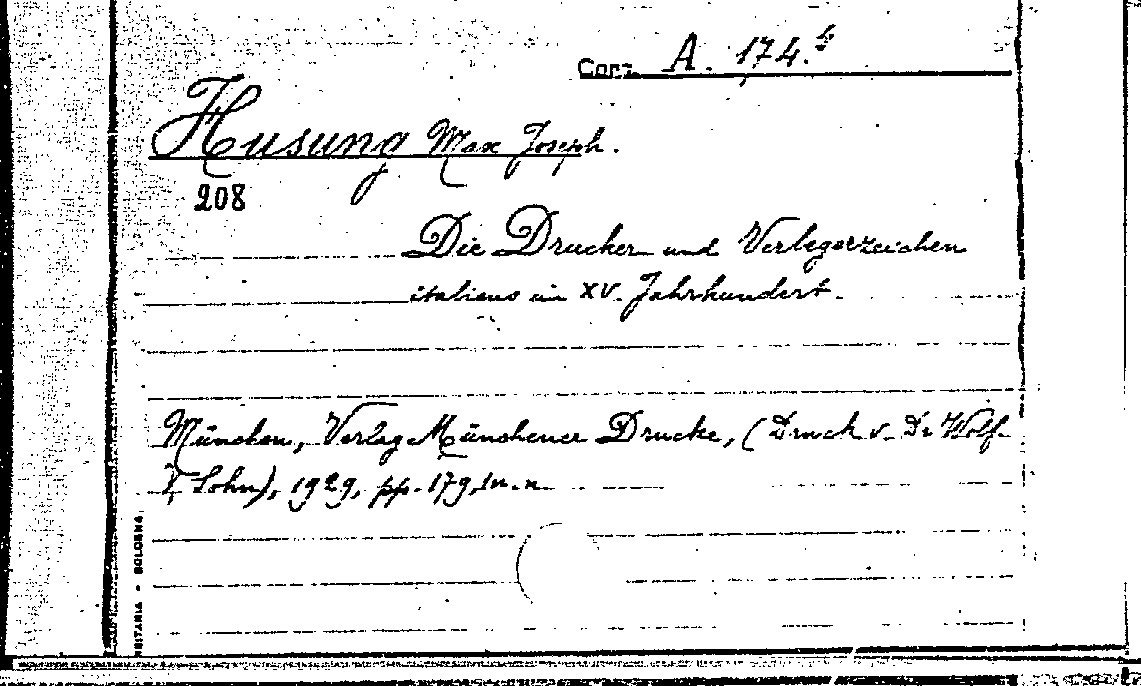 Corz. A. 174.5
Husung Max Joseph.
208
Die Drucker und Verlegerzeichen
italiens im XV. Jahrhundert.
München, Verlag Münchener Drucke, (Druck v. Dr Wolf
Sohn), 1929, pp. 179,1 n.n
BOLOGNA